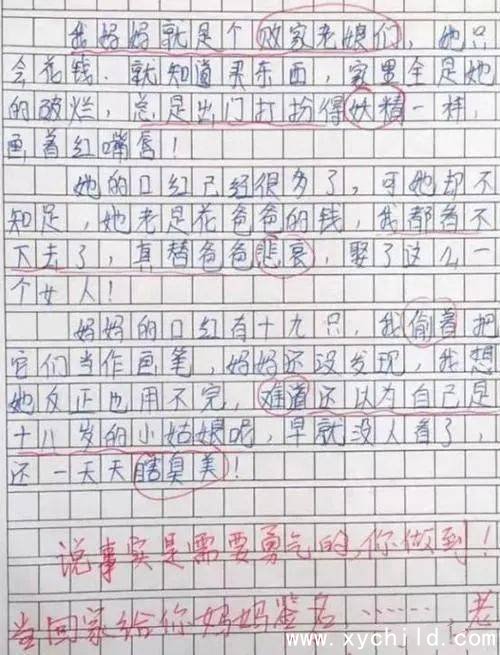 我妈妈就是个败家老娘们，她只
会花钱．就知道买东西，家里全是她
的破烂，总是出门打扮得妖精一样，
画着红嘴唇！
她的口红已经很多了，可她却不
知足，她老是花爸爸的钱，我都看不
下去了，真替爸爸悲哀，娶了这么一
个女人！
妈妈的口红有十九只，我偷着把
它们当作画笔，妈妈还没发现，我想
她反正也用不完，难道还以为自己是
十八岁的小姑娘呢，早就没人看了，
还一天天瞎臭美！
说事实是需要勇气的，你做到！
当回家给你妈妈签名……，老
www.xychild.com